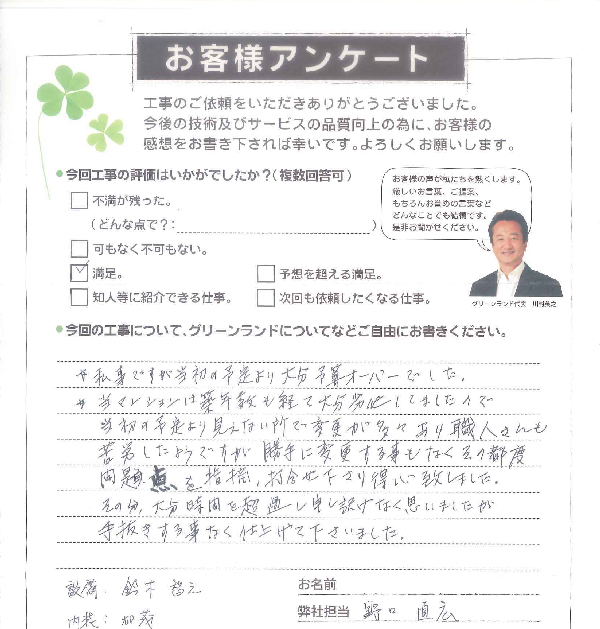 お客様アンケート
工事のご依頼をいただきありがとうございました。
今後の技術及びサービスの品質向上の為に、お客様の
感想をお書き下されば幸いです。よろしくお願いします。
●今回工事の評価はいかがでしたか?(複数回答可)
不満が残った。
(どんな点で?: )
可もなく不可もない。
満足。
予想を超える満足。
知人等に紹介できる仕事。
次回も依頼したくなる仕事。
お客様の声が私たちを熱くします。
厳しいお言葉、ご提案、
もちろんお褒めの言葉など
どんなことでも結構です。
是非お聞かせください。
グリーンランド代表
●今回の工事について、グリーンランドについてなどご自由にお書きください。
私事ですが当初の予定より大分予算オーバーでした。
当マンションは築年数も経て大分劣化してましたので
当初の予定より見えない所で変更が多々あり職人さんも
苦労したようですが勝手に変更する事もなくその都度
問題点を指摘、打合せ下さり得心致しました。
その分、大分時間を超過し申し訳けなく思いましたが
手抜きする事なく仕上げて下さいました。
設備: 鈴木
お名前
内装:
弊社担当 野口 直広